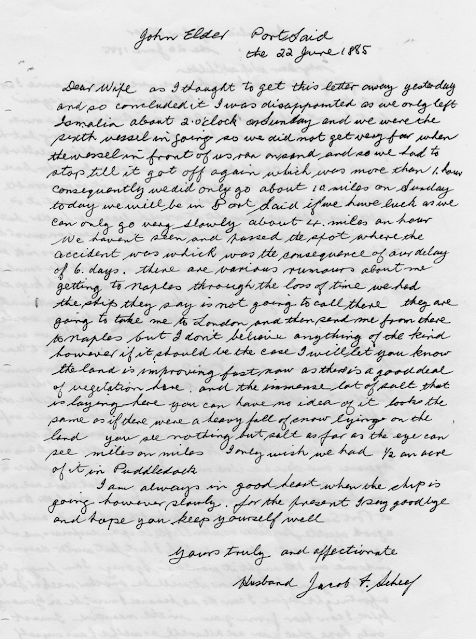 John Elder Port Said
the 22 June 1885
Dear Wife as I thought to get this letter away yesterday
and so concluded it I was disappointed as we only left
Ismalin about 2.o'clock on Sunday and we were the
sixth vessel in going so we did not get very far when
the vessel in front of us ran on sand, and so we had to
stop till it got off again which was more than 1. hour
consequently we did only go about 10 miles on Sunday
today we will be in Port Said if we have luck as we
can only go very slowly about 4. miles an hour
We havent seen and passed de spot where the
accident was which was the consequence of our delay
of 6. days. there are various rumours about me
getting to Naples through the loss of time we had
the ship they say is not going to call there they are
going to take me to London and then send me from there
to Naples but I don't believe anything of the kind
however if it should be the case I will let you know
the land is improving fast now as there is a good deal
of vegetation here. and the immense lot of salt that
is laying here you can have no idea of it looks the
same as if there were a heavy fall of snow lying on the
land you see nothing but salt as far as the eye can
see miles on miles I only wish we had ½ an acre
of it in Puddledock
I am always in good heart when the ship is
going however slowly. for the present I say goodbye
and hope you keep yourself well
Yours truly and affectionate
Husband Jacob F. Scheef